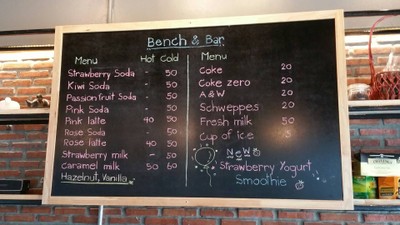 Bench & Bar
Menu Hot Cold
Strawberry Soda - 50
Kiwi Soda - 50
Passion fruit Soda - 50
Pink Soda - 50
Pink latte 40 50
Rose Soda - 50
Rose latte 40 50
Strawberry milk - 50
caramel milk 50 60
Hazelnut, Vanilla
Menu
Coke 20
Coke zero 20
A&W 20
Schweppes 20
Fresh milk 50
Cup of ice
New
Strawberry Yogurt
Smoothie